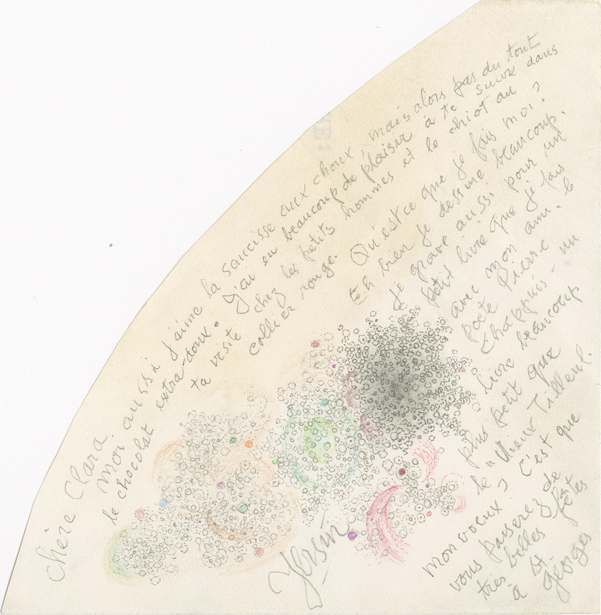 Chère Clara
Moi aussi j'aime la saucisse aux choux, mais alors pas du tout
le chocolat extra-doux. J'ai eu beaucoup de plaisir à te suivre dans
ta visite chez les petits hommes et le chiot au
collier rouge. Qu'est ce que je fais moi?
Eh bien je dessine beaucoup.
je grave aussi pour un
petit livre que je fais
avec mon ami le
poète Pierre
Chappuis - un
livre beaucoup
plus petit que
le "Vieux Tilleul".
mon voeux? C'est que
vous passerez de
très belles fêtes
à St-
Georges
Yersin